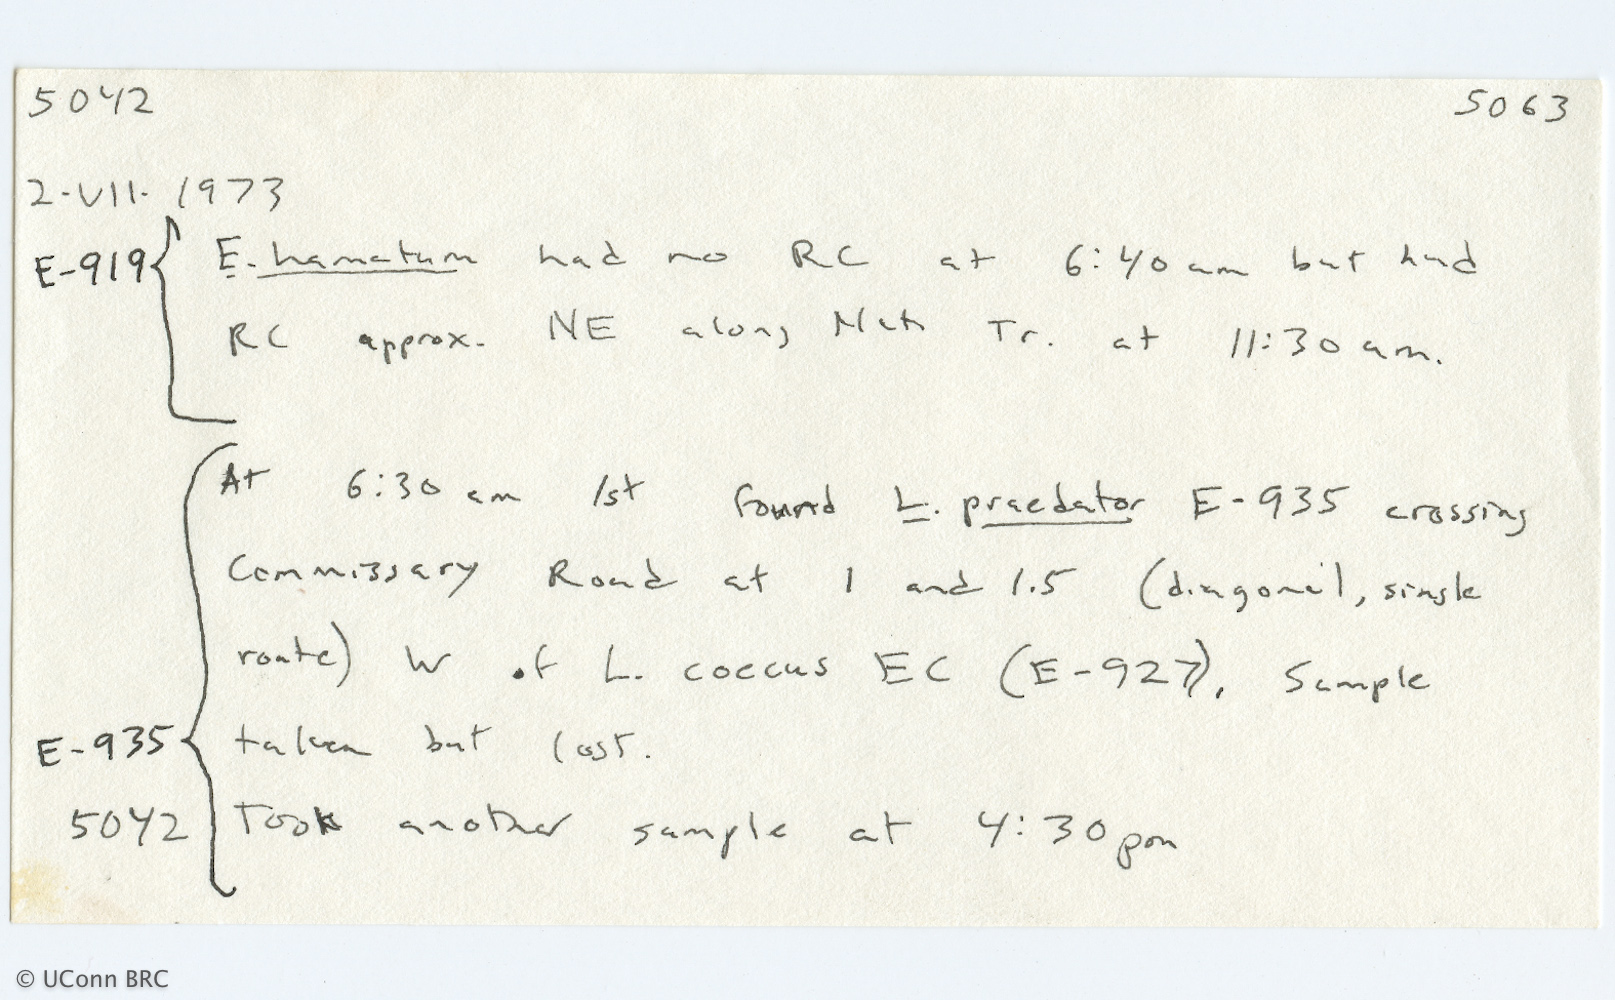 5042 5063
2-VII-1973
E-919 E. hamatum had no RC at 6:40 am but had
RC approx. NE along Tr. at 11:30 am.
At 6:30 am 1st found L. praedator E-935 crossing
Commissary Road at 1 and 1.5 (diagonal, single
route) W of L. coecus EC (E-927). Sample
E-935 taken but lost.
5042 Took another sample at 4:30 pm
© UConn BRC